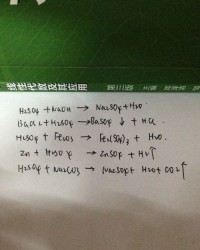 线性代数及其应用 第三版
H2SO4 + NaOH → Na2SO4 + H2O
BaCl2 + H2SO4 → BaSO4 ↓ + HCl
H2SO4 + Fe2O3 → Fe2(SO4)3 + H2O.
Zn + H2SO4 → ZnSO4 + H2↑
H2SO4 + Na2CO3 → Na2SO4 + H2O + CO2↑